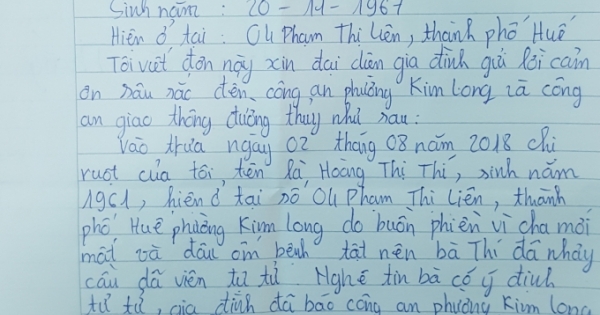 Sinh năm : 20 - 11 - 1967
Hiện ở tại : 04 Phạm Thị Liên, thành phố Huế
Tôi viết đơn này xin đại diện gia đình gửi lời cảm
ơn sâu sắc đến công an phường Kim Long và công
an giao thông đường thủy như sau:
Vào trưa ngày 02 tháng 08 năm 2018 chị
ruột của tôi, tên là Hoàng Thị Thí, sinh năm
1961, hiện ở tại số 04 Phạm Thị Liên, thành
phố Huế phường Kim Long do buồn phiền vì cha mới
mất và đau ốm bệnh tật nên bà Thí đã nhảy
cầu dã viên tự tử. Nghe tin bà có ý định
tự tử, gia đình đã báo công an phường Kim Long